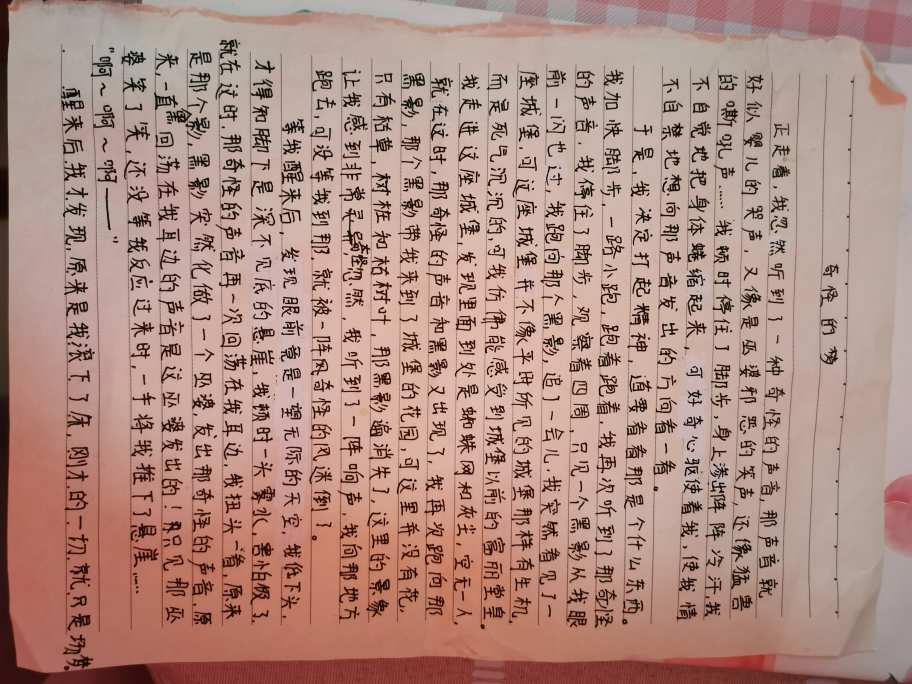 奇怪的梦
正走着,我忽然听到了一种奇怪的声音,那声音就
好似婴儿的哭声,又像是巫婆邪恶的笑声,还像猛兽
的嘶吼声……我顿时停住了脚步,身上渗出阵阵冷汗,我
不自觉地把身体蜷缩起来,可好奇心驱使着我,使我情
不自禁地想向那声音发出的方向看一看。
于是,我决定打起精神,这要看看那是个什么东西。
我加快脚步,一路小跑,跑着跑着,我再次听到了那奇怪
的声音,我停住了脚步,观察着四周,只见一个黑影从我眼
前一闪也过,我跑向那个黑影,追了一会儿,我突然看见了一
座城堡,可这座城堡并不像平时所见的城堡那样有生机,
而是死气沉沉的,可我仿佛能感受到城堡以前的富丽堂皇。
我走进这座城堡,发现里面到处是蜘蛛网和灰尘,空无一人,
就在这时,那奇怪的声音和黑影又出现了,我再次跑向那
黑影,那个黑影带我来到了城堡的花园,可这里并没有花,
只有枯草,树桩和枯树叶,那黑影消失了,这里的景象
让我感到非常奇怪,忽然,我听到了一阵响声,我向那地方
跑去,可没等我到那,就被一阵因奇怪的风迷倒了。
等我醒来后,发现眼前竟是一望无际的天空,我低下头,
才得知脚下是深不见底的悬崖,我顿时一头雾水,害怕极了
就在这时,那奇怪的声音再一次回荡在我耳边,我扭头一看,原来
是那个黑影,黑影突然化做了一个巫婆,发出那奇怪的声音,原
来,一直回荡在我耳边的声音是这巫婆发出的!只见那巫
婆笑了笑,还没等我反应过来时,一手将我推下了悬崖……
“啊~啊~啊——”
醒来后,我才发现,原来是我滚下了床,刚才的一切,就只是场梦。